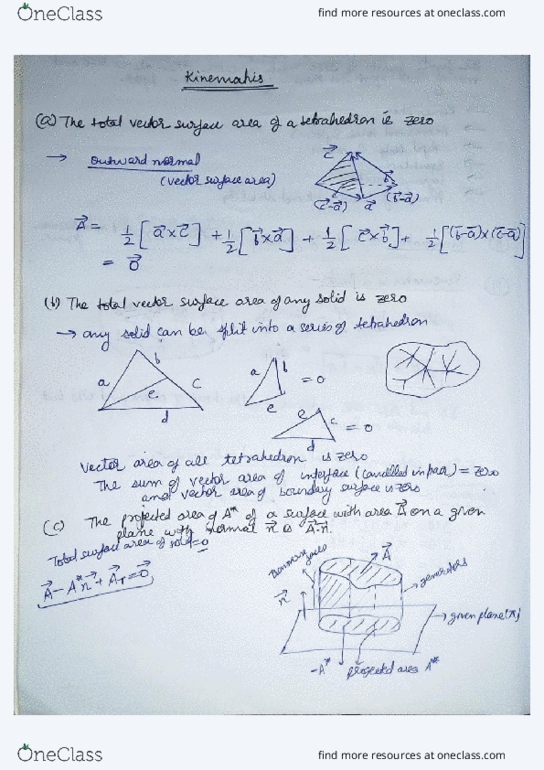 OneClass
find more resources at oneclass.com
Kinematis
(a) The total vector surface area of a tetrahedron is zero
→ Outward normal
(vector surface area)
c⃗
b⃗
(c⃗-a⃗) a⃗ (b⃗-a⃗)
A⃗ = 1/2 [a⃗×c⃗] + 1/2 [b⃗×a⃗] + 1/2 [c⃗×b⃗] + 1/2 [(b⃗-a⃗)×(c⃗-a⃗)]
= 0⃗
(b) The total vector surface area of any solid is zero
→ any solid can be split into a series of tetrahedron
a b e c d
a b e = 0
e c d = 0
Vector area of all tetrahedron is zero
The sum of vector area of interface (cancelled in pair) = zero
and vector area of boundary surface is zero
(c) The projected area of A* of a surface with area A⃗ on a given
plane with normal n⃗ is A⃗·n⃗.
Total surface area of solid = 0
A⃗ - A*n⃗ + A⃗r = 0⃗
A⃗
generators
n⃗
given plane (π)
-A* projected area A*
OneClass
find more resources at oneclass.com